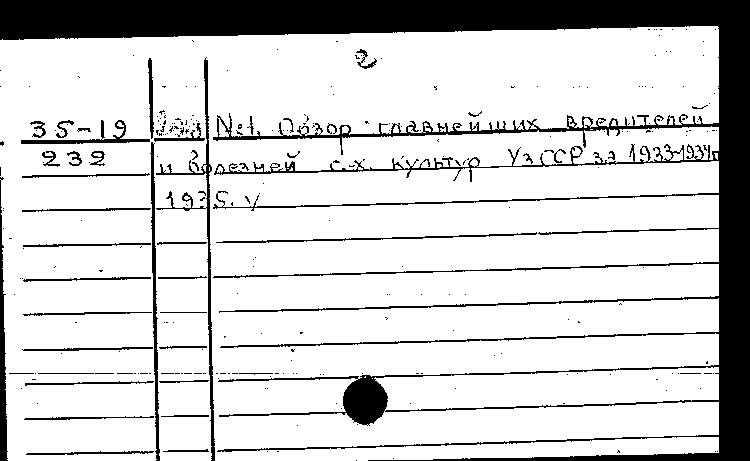 2
35-19 №1. Обзор главнейших вредителей
232 и болезней с.-х. культур УзССР за 1933-1934г
1935. V